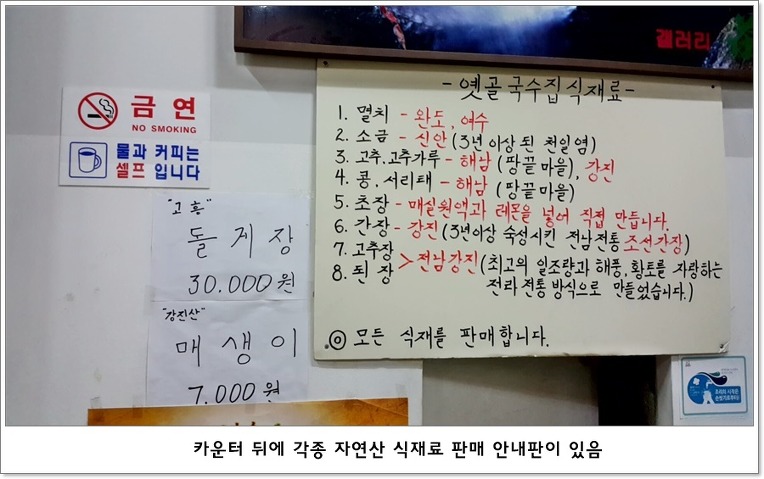 갤러리
금연
NO SMOKING
물과 커피는
셀프 입니다
"고흥"
돌게장
30.000원
"강진산"
매생이
7.000원
- 옛골국수집식재료 -
1. 멸치 - 완도, 여수
2. 소금 - 신안 (3년이상 된 천일염)
3. 고추.고추가루 - 해남 (땅끝마을), 강진
4. 콩.서리태 - 해남 (땅끝마을)
5. 초장 - 매실원액과 레몬을 넣어 직접 만듭니다.
6. 간장 - 강진 (3년이상 숙성시킨 전남전통 조선간장)
7. 고추장
8. 된장 > 전남강진 (최고의 일조량과 해풍, 황토를 자랑하는
전라 전통방식으로 만들었습니다.)
◎ 모든 식재를 판매합니다.
카운터 뒤에 각종 자연산 식재료 판매 안내판이 있음